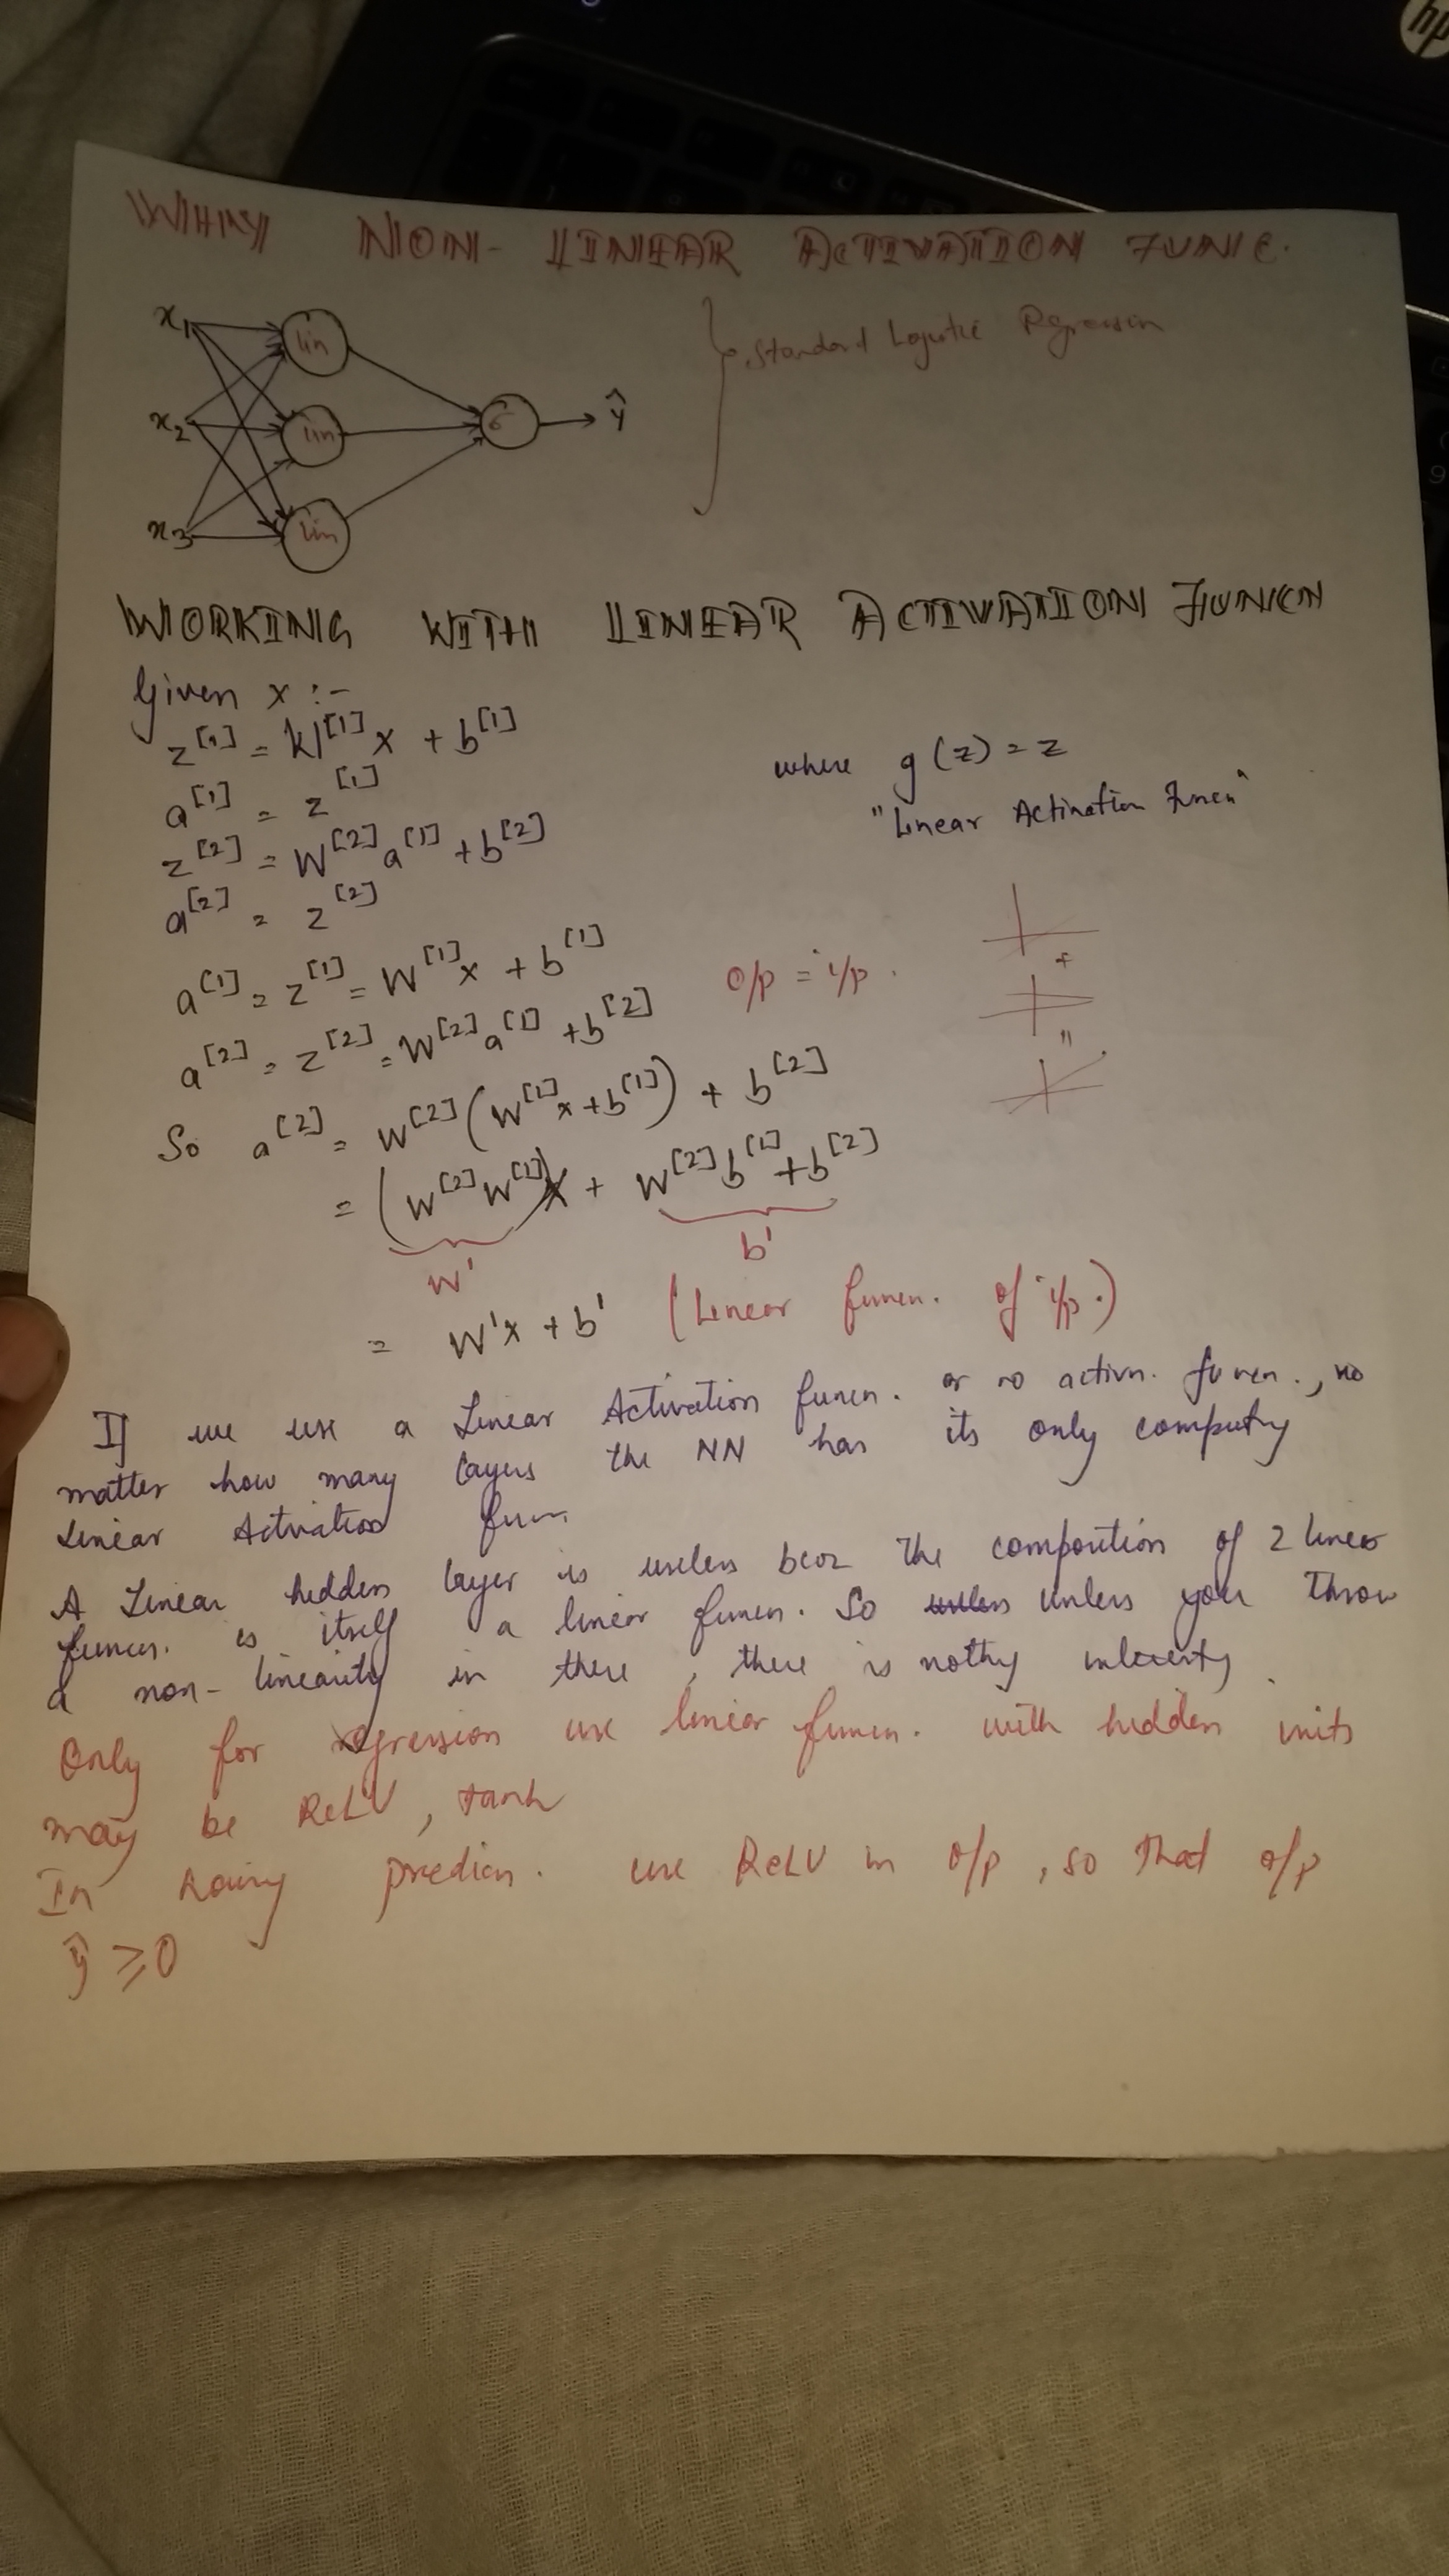 hp
WHY NON-LINEAR ACTIVATION FUNC.
x₁ lin
Standard Logistic Regression
x₂ lin σ ŷ
x₃ lin
WORKING WITH LINEAR ACTIVATION FUNCN
Given x :-
z[1] = W[1]x + b[1]
where g(z) = z
a[1] = z[1]
"Linear Activation Funcn"
z[2] = W[2]a[1] + b[2]
a[2] = z[2]
a[1] = z[1] = W[1]x + b[1]
o/p = i/p.
+
a[2] = z[2] = W[2]a[1] + b[2]
So a[2] = W[2](W[1]x + b[1]) + b[2]
= (W[2]W[1])x + W[2]b[1] + b[2]
W' b'
= W'x + b' (Linear funcn. of i/p.)
If we use a Linear Activation funcn. or no activn. funcn., no
matter how many layers the NN has its only computg
Linear Activation func
A Linear hidden layer is useless bcoz the composition of 2 linear
funcn. is itself a linear funcn. So unless you throw
a non-linearity in there, there is nothg
Only for regression use linear funcn. with hidden units
may be ReLU, tanh
In predicn. use ReLU in o/p, so that o/p
ŷ ≥ 0